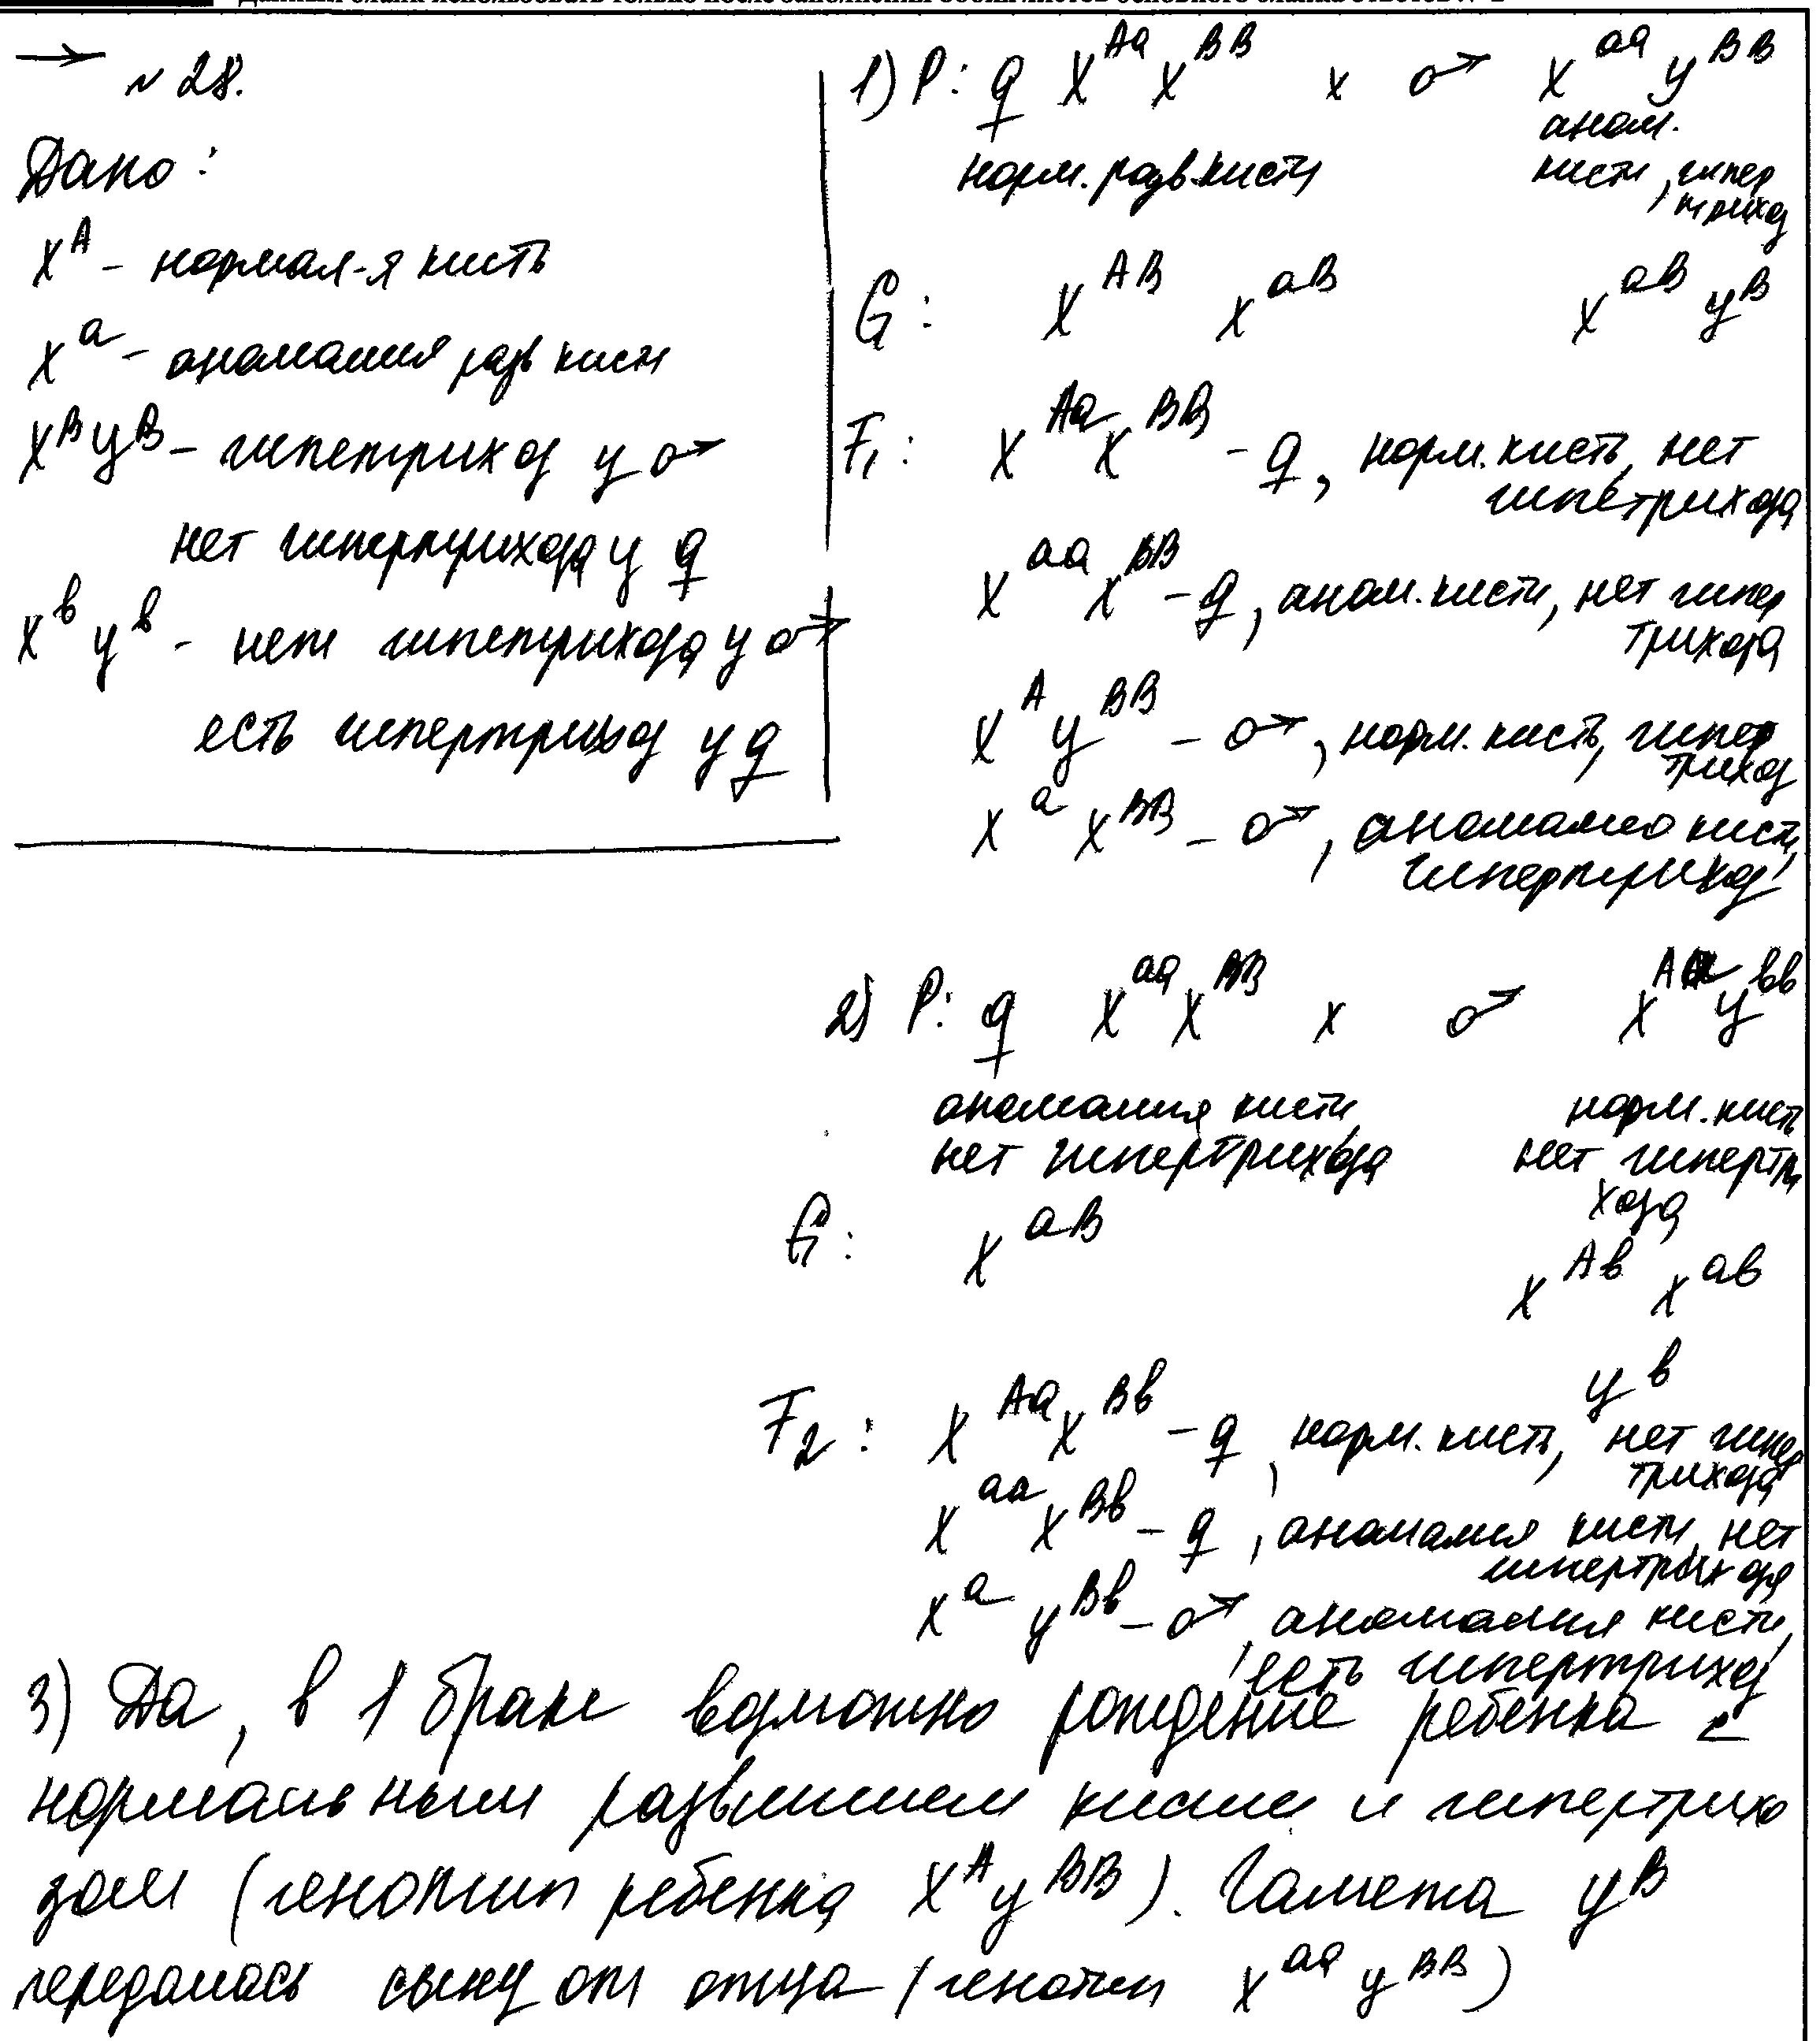 №28.
Дано:
X^A - нормал-я кисть
X^a - аномалия разв кисти
X^B y^B - гипетриход у ♂
нет гипертрихода у ♀
X^b y^b - нет гипетрихода у ♂
есть гипертриход у ♀
1) P: ♀ X^Aa X^BB x ♂ X^aa y^BB
норм. разв. кисти аном. кисти, гипертриход
G: X^AB X^aB X^aB y^B
F1: X^Aa X^BB - ♀, норм. кисть, нет
гипетрихода
X^aa X^BB - ♀, аном. кисти, нет гипер
трихода
X^A y^BB - ♂, норм. кисть, гипер
триход
X^a X^BB - ♂, аномалио кисти,
гипертриход
2) P: ♀ X^aa X^BB x ♂ y^bb
аномалия кисти, норм. кисть
нет гипертрихода нет гипертри
хода
G: X^aB X^Ab X^ab
y^b
F2: X^Aa X^Bb - ♀, норм. кисть, нет гипер
трихода
X^aa X^Bb - ♀, аномалия кисти, нет
гипертрихода
X^a y^Bb - ♂, аномалия кисти,
есть гипертриход
3) Да, в 1 браке возможно рождение ребенка с
нормальным развитием кисти и гипертрихо
зом (генотип ребенка X^A y^BB). Гамета y^B
передалась сыну от отца (генотип X^aa y^BB)